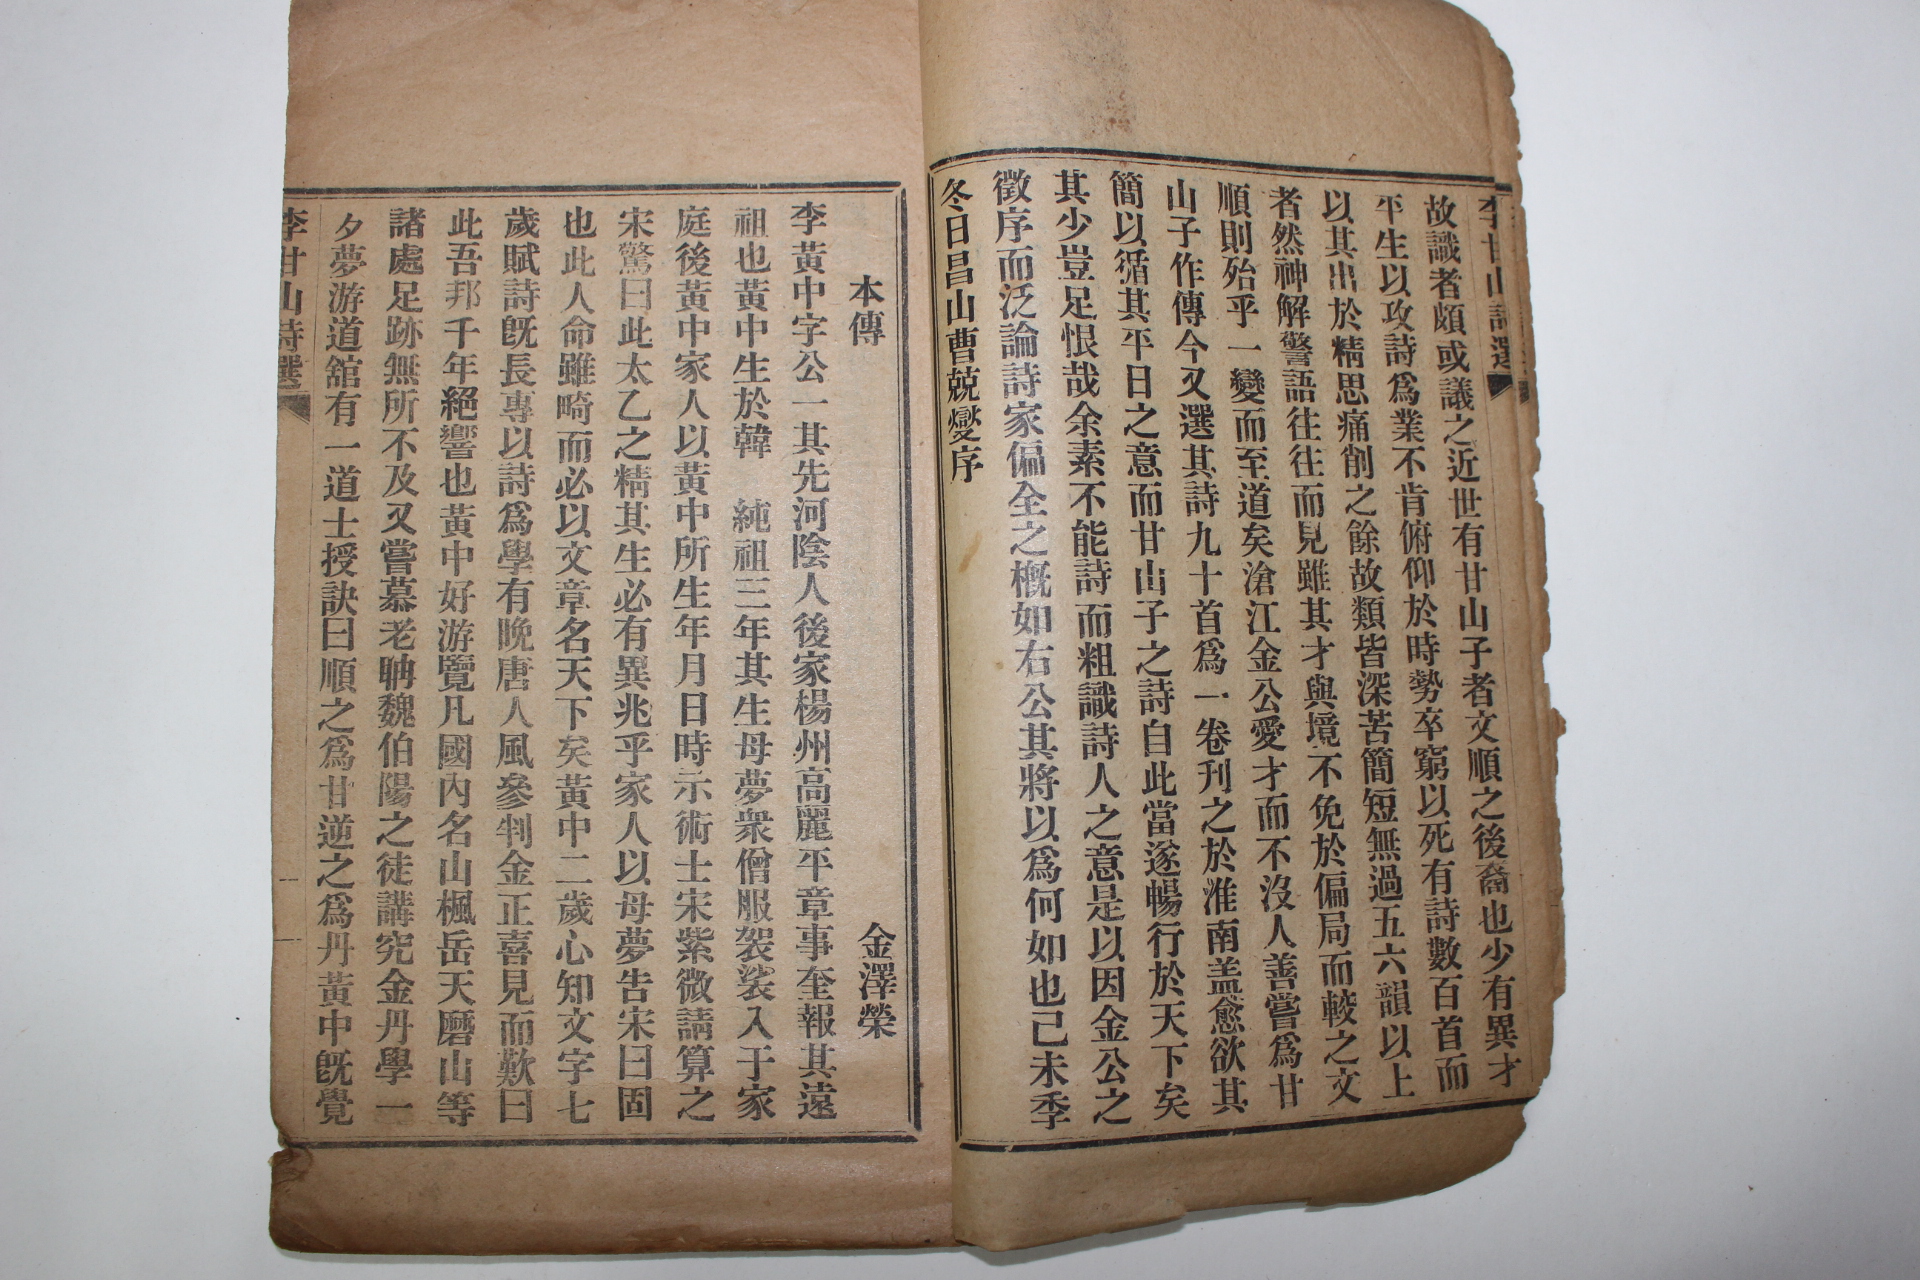 李甘山詩選
故識者頗或議之近世有甘山子者文順之後裔也少有異才
平生以攻詩爲業不肯俯仰於時勢卒窮以死有詩數百首而
以其出於精思痛削之餘故類皆深苦簡短無過五六韻以上
者然神解警語往往而見雖其才與境不免於偏局而較之文
順則殆乎一變而至道矣滄江金公愛才而不沒人善嘗爲甘
山子作傳今又選其詩九十首爲一卷刊之於淮南盖愈欲其
簡以循其平日之意而甘山子之詩自此當遂暢行於天下矣
其少豈足恨哉余素不能詩而粗識詩人之意是以因金公之
徵序而泛論詩家偏全之槪如右公其將以爲何如也己未季
冬日昌山曹兢燮序
本傳 金澤榮
李黃中字公一其先河陰人後家楊州高麗平章事奎報其遠
祖也黃中生於韓 純祖三年其生母夢衆僧服袈裟入于家
庭後黃中家人以黃中所生年月日時示術士宋紫微請算之
宋驚曰此太乙之精其生必有異兆乎家人以母夢告宋曰固
也此人命雖畸而必以文章名天下矣黃中二歲心知文字七
歲賦詩旣長專以詩爲學有晩唐人風參判金正喜見而歎曰
此吾邦千年絕響也黃中好游覽凡國內名山楓岳天磨山等
諸處足跡無所不及又嘗慕老聃魏伯陽之徒講究金丹學一
夕夢游道舘有一道士授訣曰順之爲甘逆之爲丹黃中旣覺
李甘山詩選